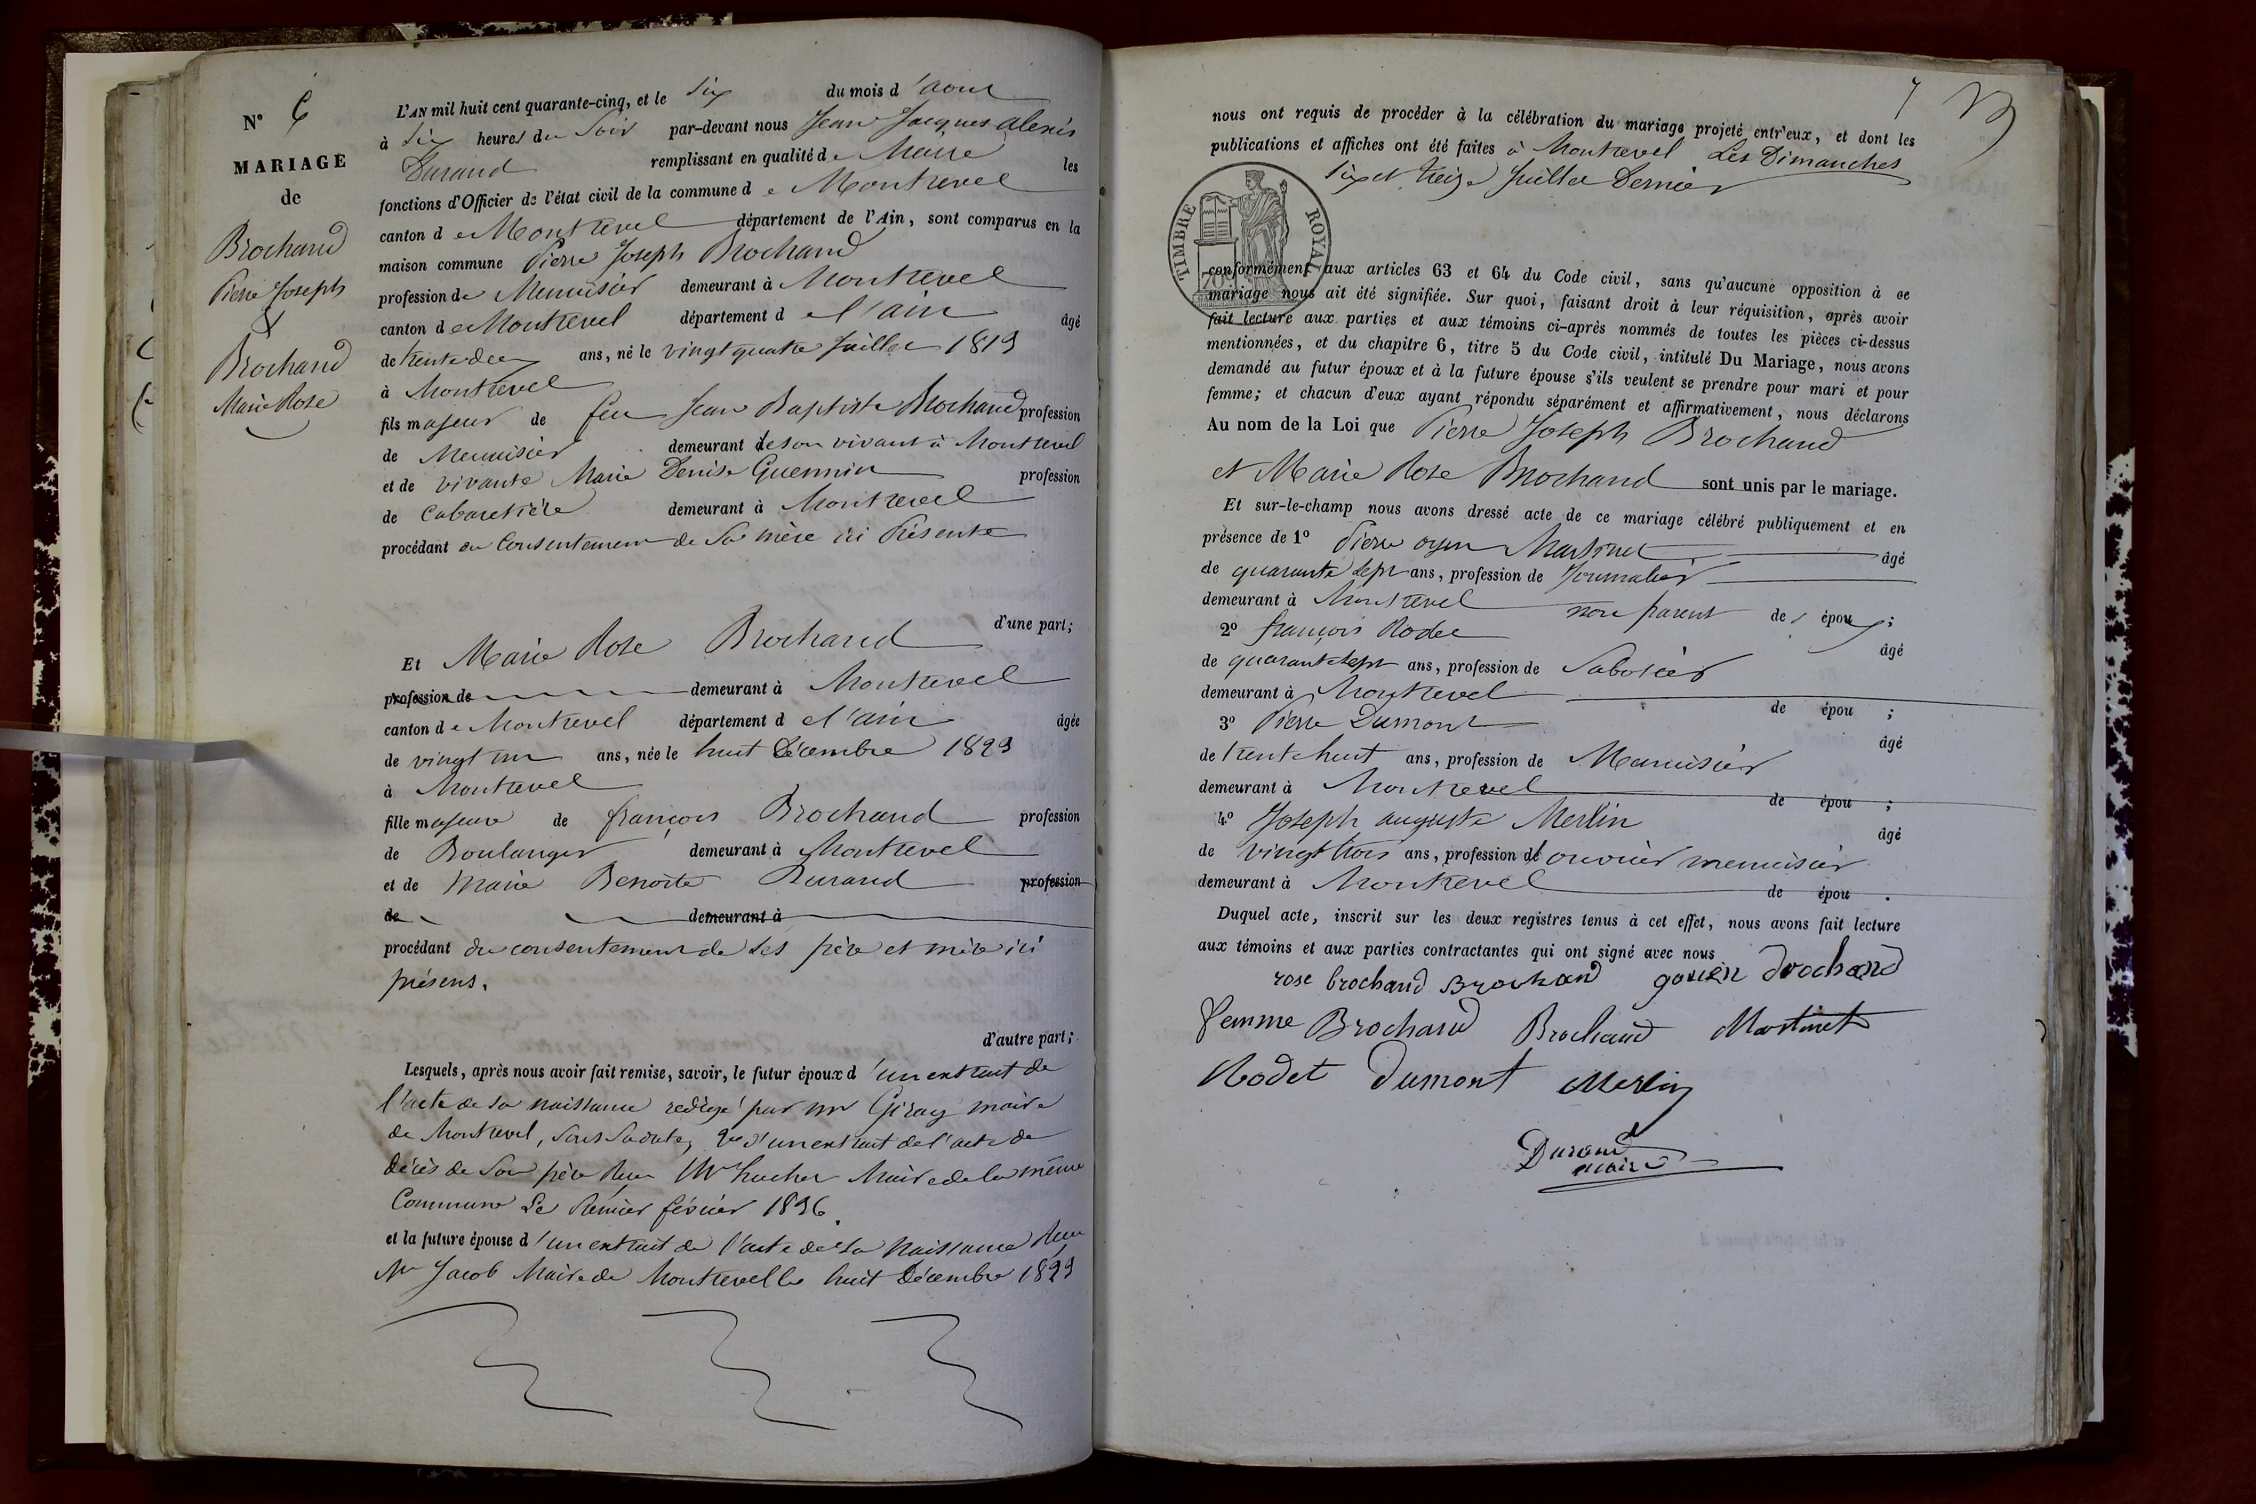 N° 6
MARIAGE
de
Brochand
Pierre Joseph
&
Brochand
Marie Rose
L'AN mil huit cent quarante-cinq, et le six du mois d'aout
à six heures du soir par-devant nous Jean Jacques alexis
Durand remplissant en qualité de Maire les
fonctions d'Officier de l'état civil de la commune de Montrevel
canton de Montrevel département de l'Ain, sont comparus en la
maison commune Pierre Joseph Brochand
profession de Menuisier demeurant à Montrevel
canton de Montrevel département de l'ain âgé
de trente deux ans, né le vingt quatre Juillet 1813
à Montrevel
fils majeur de feu Jean Baptiste Brochand profession
de Menuisier demeurant de son vivant à Montrevel
et de vivante Marie Denise Guennin profession
de Cabaretière demeurant à Montrevel
procédant du Consentement de Sa mère ici Présente
d'une part;
Et Marie Rose Brochand
profession de demeurant à Montrevel
canton de Montrevel département de l'ain âgée
de vingt un ans, née le huit Décembre 1823
à Montrevel
fille majeure de françois Brochand profession
de Boulanger demeurant à Montrevel
et de Marie Benoite Durand profession
de demeurant à
procédant du consentement de ses père et mère ici
présens.
d'autre part;
Lesquels, après nous avoir fait remise, savoir, le futur époux d'un extrait de
l'acte de sa naissance redigé par mr Giray maire
de Montrevel, sous sa date, d'un extrait de l'acte de
décès de Son père Reçu Mr Maire de la même
Commune Le Premier février 1836.
et la future épouse d'un extrait de l'acte de sa naissance Reçu
Mr Jacob Maire de Montrevel le huit Décembre 1823
7
nous ont requis de procéder à la célébration du mariage projeté entr'eux, et dont les
publications et affiches ont été faites à Montrevel Les Dimanches
six et treize Juillet Dernier
TIMBRE ROYAL
70c
conformément aux articles 63 et 64 du Code civil, sans qu'aucune opposition à ce
mariage nous ait été signifiée. Sur quoi, faisant droit à leur réquisition, après avoir
fait lecture aux parties et aux témoins ci-après nommés de toutes les pièces ci-dessus
mentionnées, et du chapitre 6, titre 5 du Code civil, intitulé Du Mariage, nous avons
demandé au futur époux et à la future épouse s'ils veulent se prendre pour mari et pour
femme; et chacun d'eux ayant répondu séparément et affirmativement, nous déclarons
Au nom de la Loi que Pierre Joseph Brochand
et Marie Rose Brochand sont unis par le mariage.
Et sur-le-champ nous avons dressé acte de ce mariage célébré publiquement et en
présence de 1° Pierre oyen Martinet âgé
de quarante sept ans, profession de Journalier
demeurant à Montrevel non parent des époux;
2° françois Rodet âgé
de quarante sept ans, profession de Sabotier
demeurant à Montrevel de épou ;
3° Pierre Dumont âgé
de trente huit ans, profession de Menuisier
demeurant à Montrevel de épou ;
4° Joseph auguste Merlin âgé
de vingt trois ans, profession d'ouvrier menuisier
demeurant à Montrevel de épou .
Duquel acte, inscrit sur les deux registres tenus à cet effet, nous avons fait lecture
aux témoins et aux parties contractantes qui ont signé avec nous
rose brochand Brochand brochand
femme Brochand Brochand Martinet
Rodet Dumont Merlin
Durand
maire